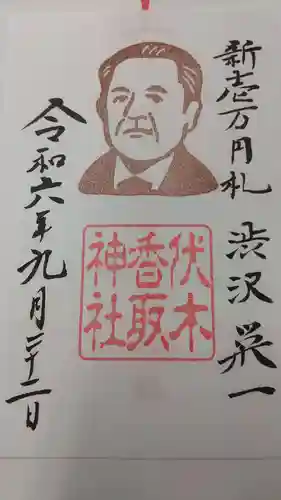 新壱万円札
渋沢栄一
伏木
香取
神社
令和六年九月二十二日